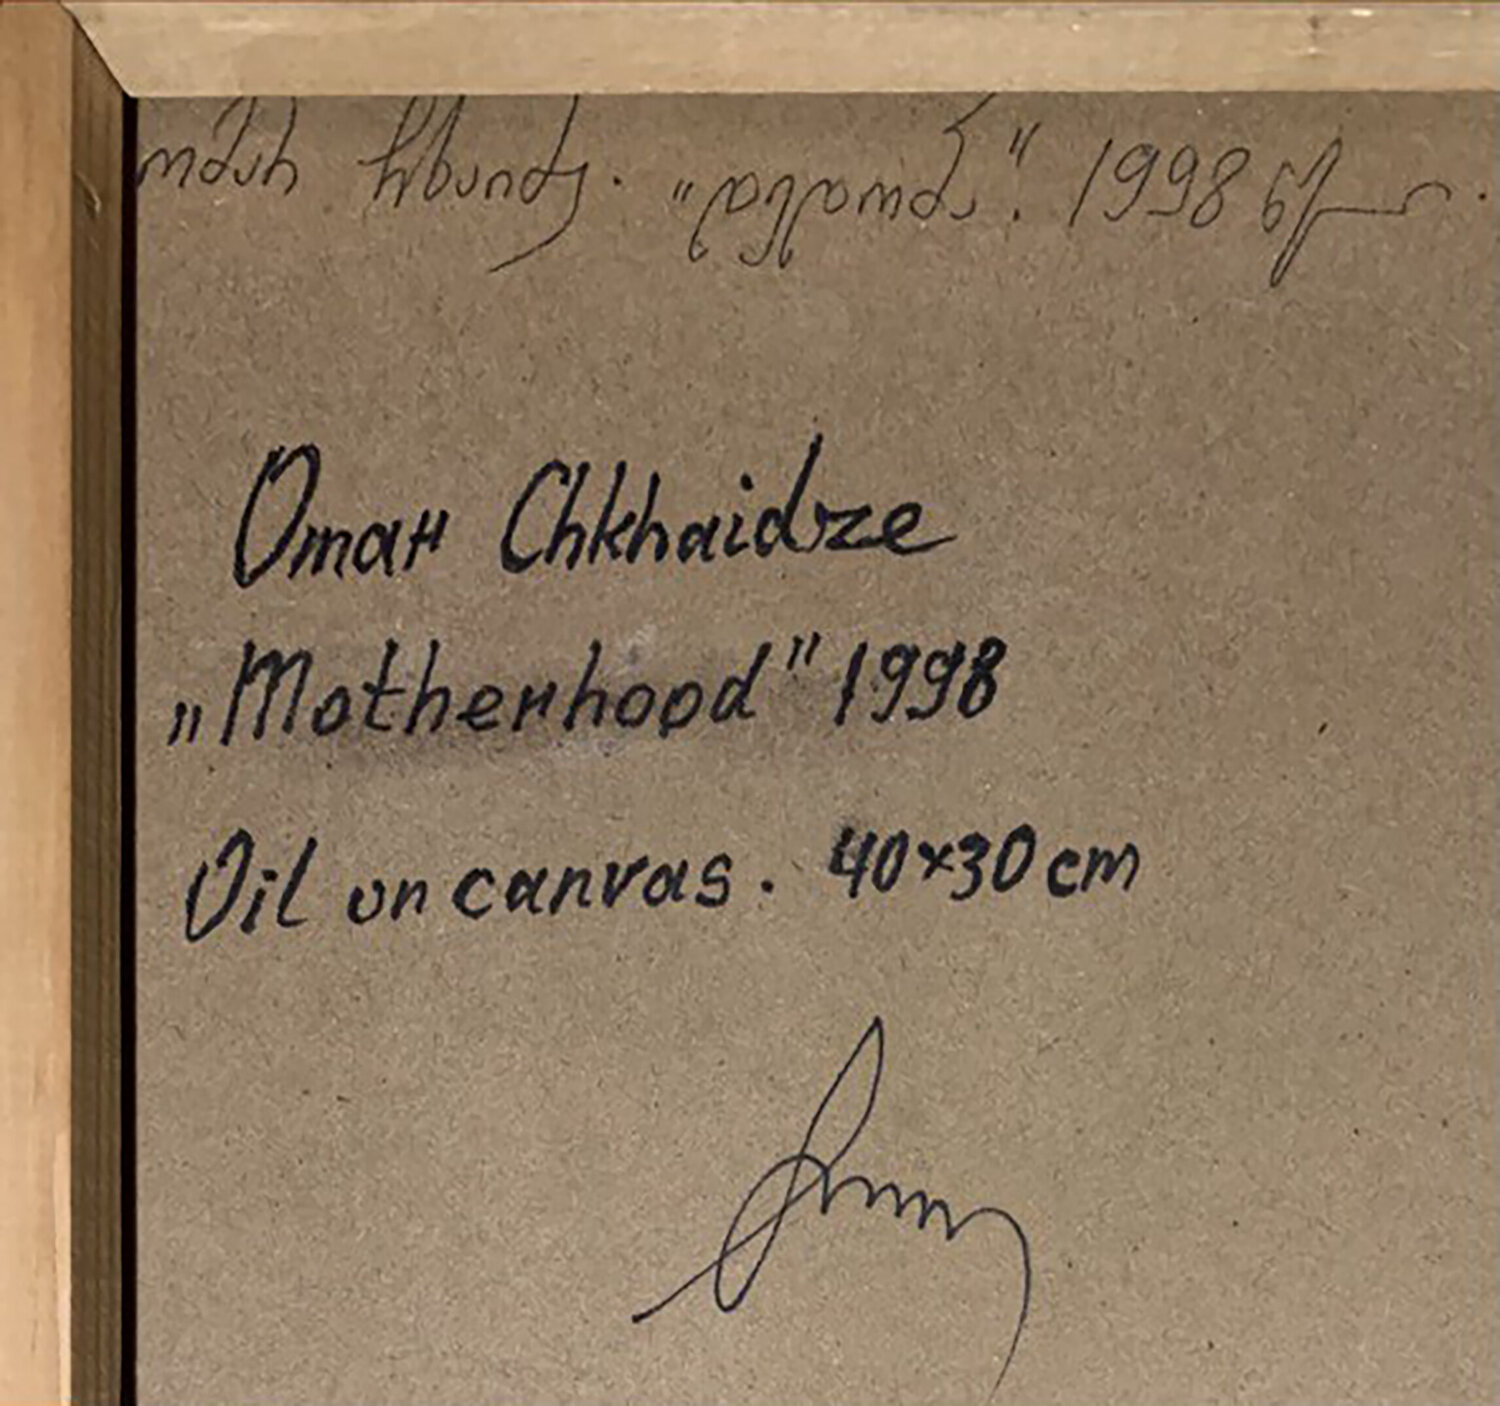 ომარ ჩხაიძე. „დედობა". 1998 წელი.
Omar Chkhaidze
„Motherhood" 1998
Oil on canvas. 40×30 cm